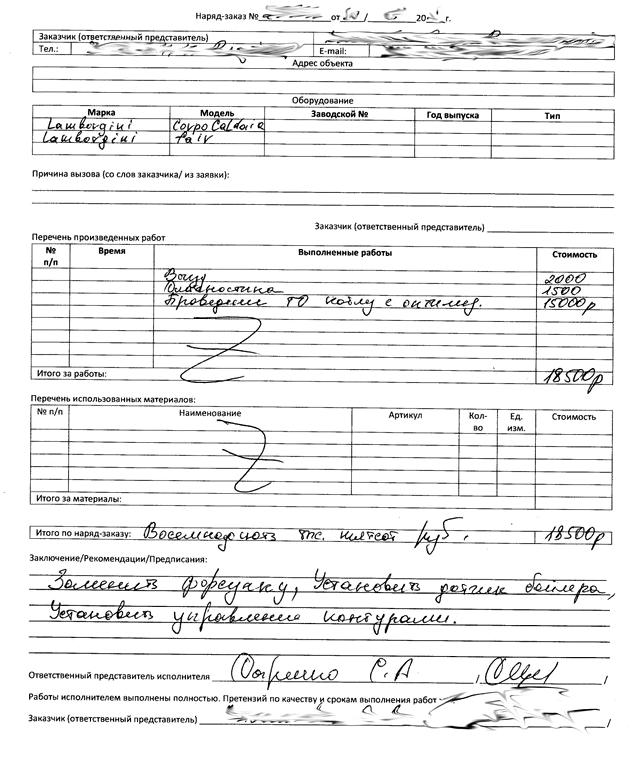 Наряд-заказ № от / 20 г.
Заказчик (ответственный представитель)
Тел.: E-mail:
Адрес объекта
Оборудование
Марка Модель Заводской № Год выпуска Тип
Lamborgini Corpo Caldaia
Lamborgini Fair
Причина вызова (со слов заказчика/ из заявки):
Заказчик (ответственный представитель)
Перечень произведенных работ
№ п/п Время Выполненные работы Стоимость
2000
Диагностика 1500
ТО котлу с 15000р
Итого за работы: 18500р
Перечень использованных материалов:
№ п/п Наименование Артикул Кол-во Ед. изм. Стоимость
Итого за материалы:
Итого по наряд-заказу: Восемнадцать тыс. пятсот руб. 18500р
Заключение/Рекомендации/Предписания:
Заменить форсунку, Установить датчик бойлера,
Установить управление контурами.
Ответственный представитель исполнителя С.А
Работы исполнителем выполнены полностью. Претензий по качеству и срокам выполнения работ
Заказчик (ответственный представитель)